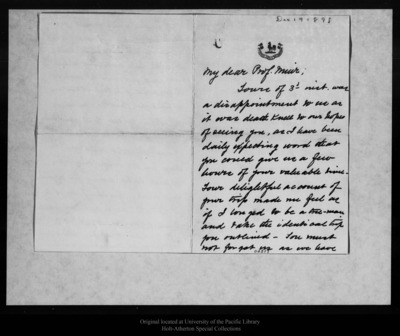 Dec 19 1898
My dear Prof. Muir,
Yours of 3d inst. was
a disappointment to us as
it was death knell to our hopes
of seeing you, as I have been
daily expecting word that
you could give us a few
hours of your valuable time.
Your delightful account of
your trip made me feel as
if I longed to be a tree-man
and take the identical trip
you outlined - You must
not forget us as we have
Original located at University of the Pacific Library
Holt-Atherton Special Collections